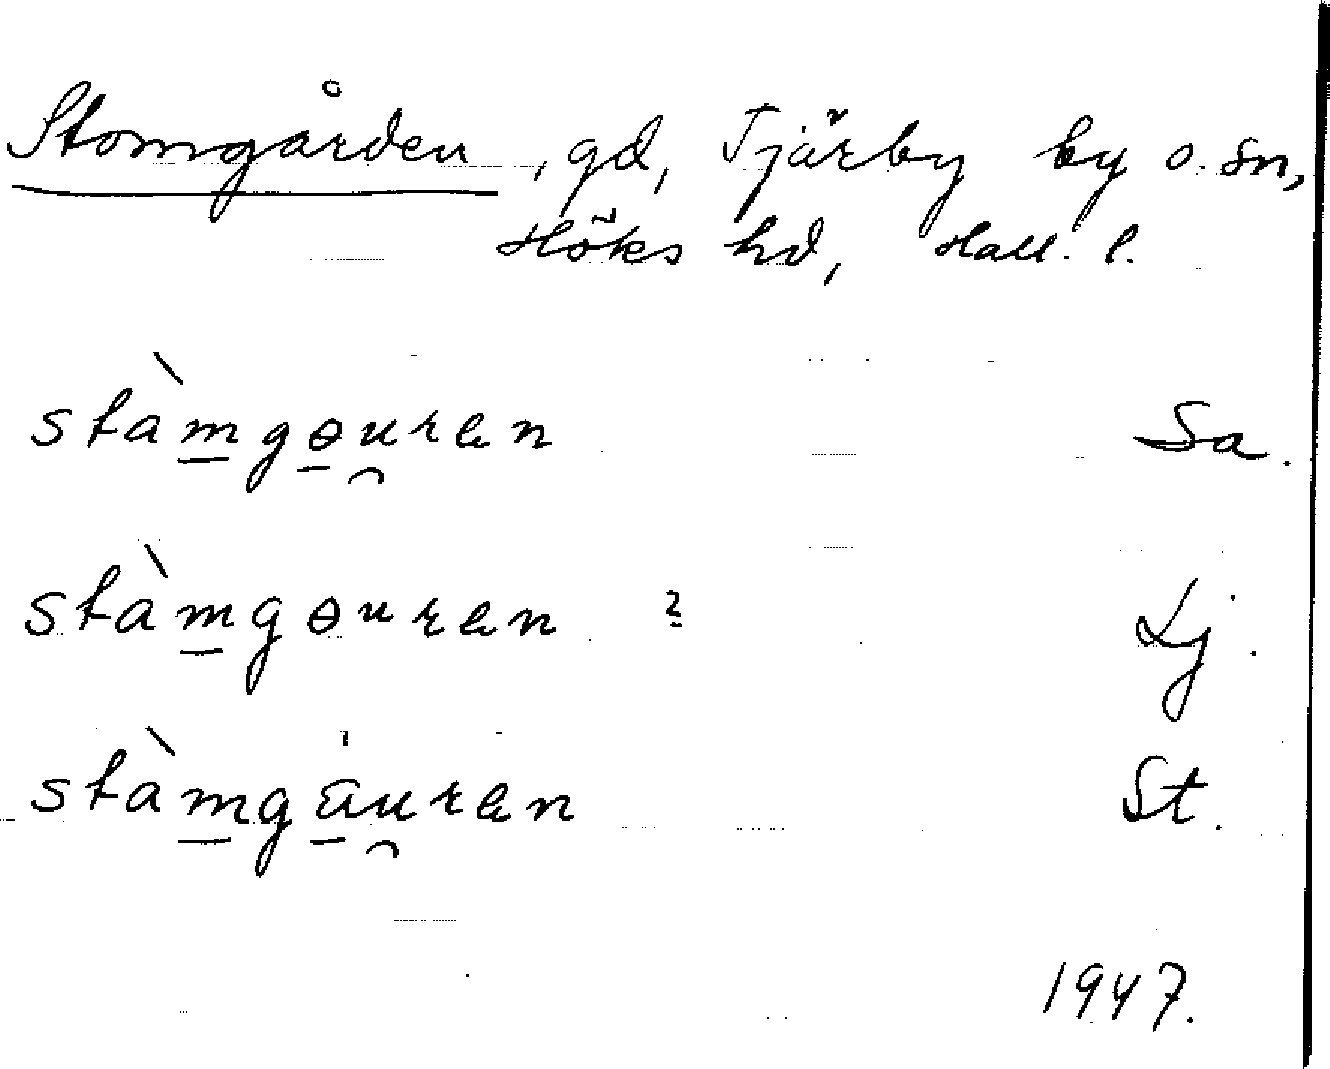 Stomgården, gd, Tjärby by o. sn,
Höks hd, Hall. l.
stàmgɵuren Sa.
stàmgɵuren ? Lj.
stàmgäuren St.
1947.